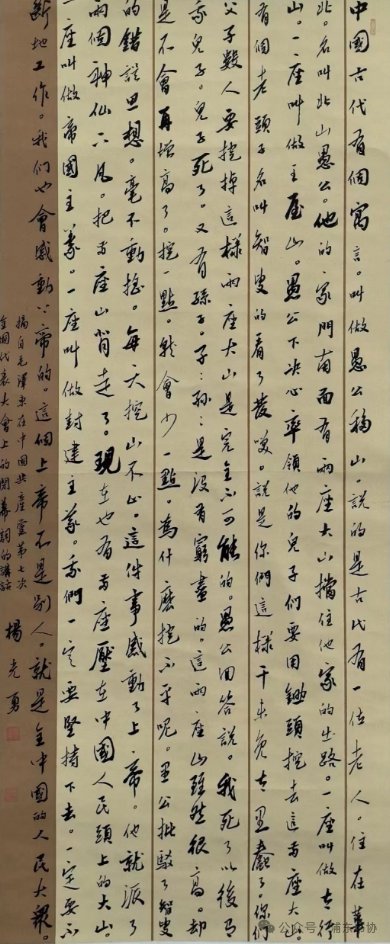 中國古代有個寓言。叫做愚公移山。說的是古代有一位老人。住在華
北。名叫北山愚公。他的家門南面有兩座大山擋住他家的出路。一座叫做太行
山。一座叫做王屋山。愚公下決心率領他的兒子們要用鋤頭挖去這兩座大山。
有個老頭子名叫智叟的看了發笑。說是你們這樣干未免太愚蠢了。你們
父子數人要挖掉這樣兩座大山是完全不可能的。愚公回答說。我死了以後有
我兒子。兒子死了。又有孫子。子子孫孫是沒有窮盡的。這兩座山雖然很高。却
是不會再增高了。挖一點。就會少一點。為什麼挖不平呢。愚公批駁了智叟
的錯誤思想。毫不動搖。每天挖山不止。這件事感動了上帝。他就派了
兩個神仙下凡。把兩座山背走了。現在也有兩座壓在中國人民頭上的大山。
一座叫做帝國主義。一座叫做封建主義。我們一定要堅持下去。一定要不
斷地工作。我們也會感動上帝的。這個上帝不是別人。就是全中國的人民大眾。
摘自毛澤東在中國共產黨第七次
全國代表大會上的閉幕詞的講話
楊光勇
公众号 · 浦东书协